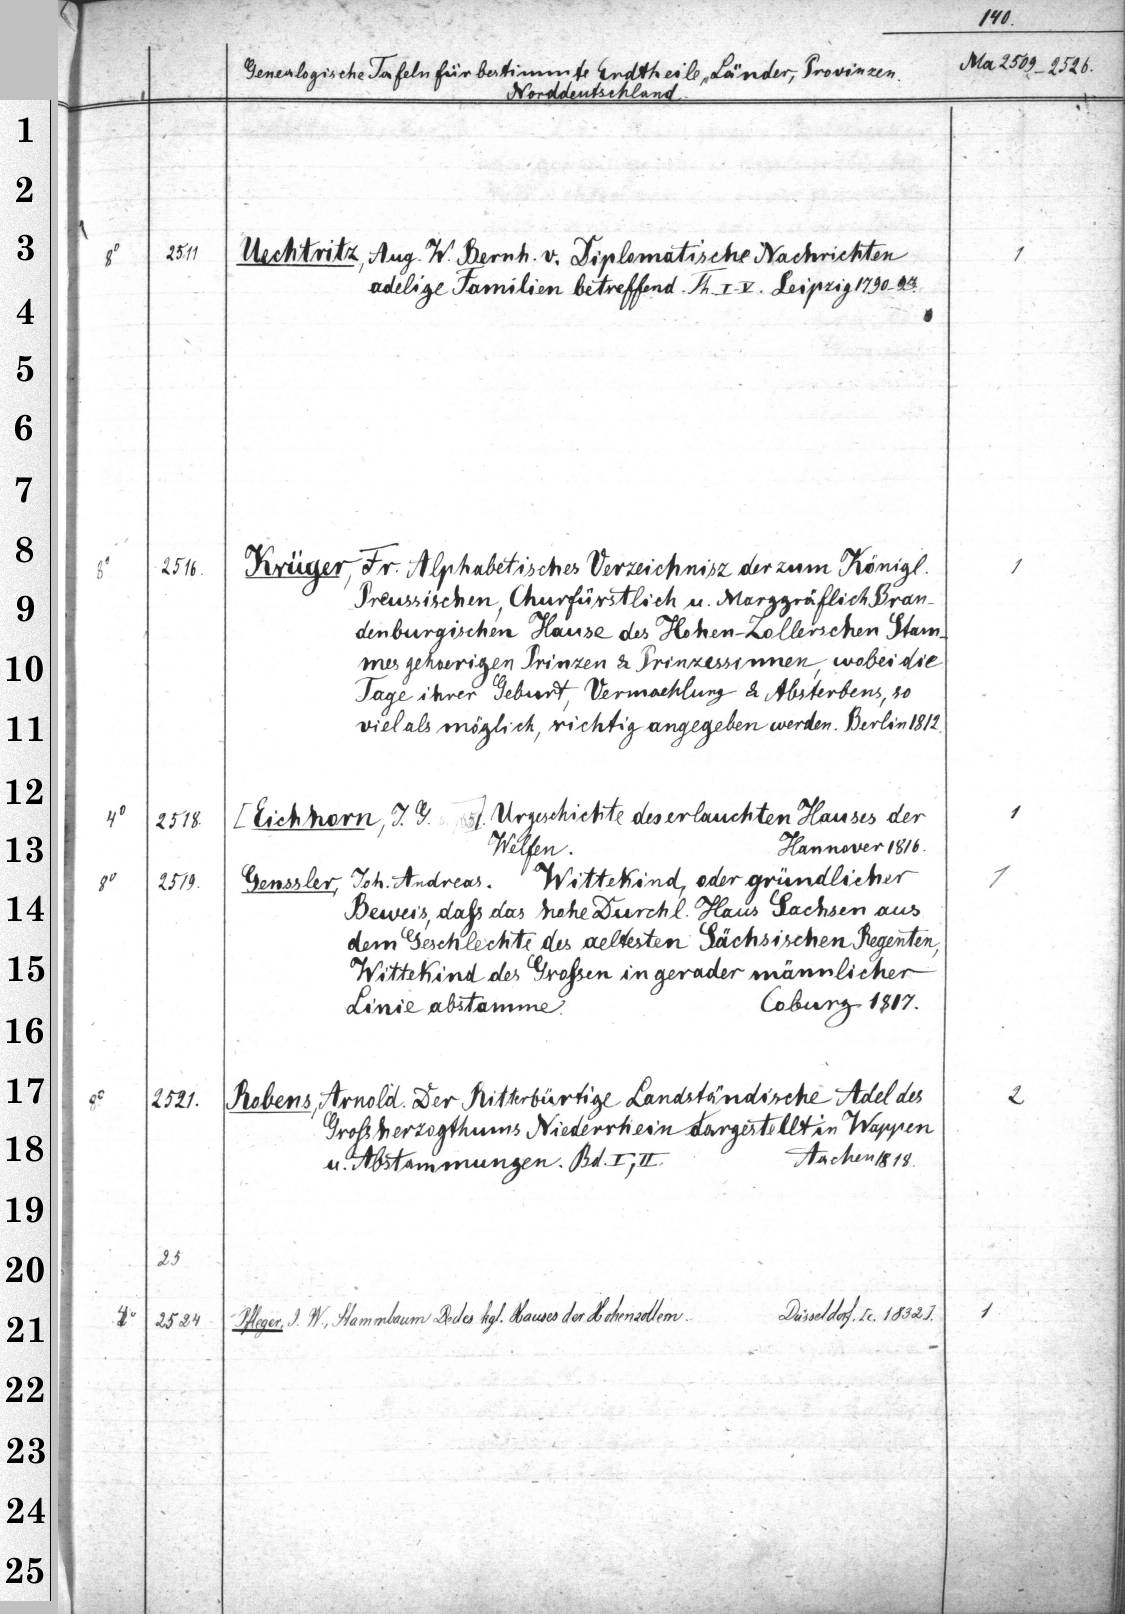 140.
Genealogische Tafeln für bestimmte Erdtheile, Länder, Provinzen. Ma 2509-2526.
Norddeutschland.
1
2
3 8° 2511 Uechtritz, Aug. W. Bernh. v. Diplomatische Nachrichten 1
adelige Familien betreffend. Th. I-V. Leipzig 1790-93.
4
5
6
7
8 8° 2516. Krüger, Fr. Alphabetisches Verzeichnisz der zum Königl. 1
9 Preussischen, Churfürstlich u. Marggräflich Bran-
denburgischen Hause des Hohen-Zollerschen Stam-
10 mes gehoerigen Prinzen & Prinzessinnen, wobei die
Tage ihrer Geburt, Vermaehlung & Absterbens, so
11 viel als möglich, richtig angegeben werden. Berlin 1812.
12 4° 2518. [Eichhorn, J. G.]. Urgeschichte des erlauchten Hauses der 1
13 Welfen. Hannover 1816.
8° 2519. Genssler, Joh. Andreas. Wittekind, oder gründlicher 1
14 Beweis, daſs das hohe Durchl. Haus Sachsen aus
dem Geschlechte des aeltesten Sächsischen Regenten,
15 Wittekind des Groſsen in gerader männlicher
Linie abstamme. Coburg 1817.
16
17 8° 2521. Robens, Arnold. Der Ritterbürtige Landständische Adel des 2
Groſsherzogthums Niederrhein dargestellt in Wappen
18 u. Abstammungen. Bd. I, II. Aachen 1818.
19
20 25
21 4° 2524 Pfleger, J. W., Stammbaum des kgl. Hauses der Hohenzollern. Düsseldorf. [c. 1832]. 1
22
23
24
25